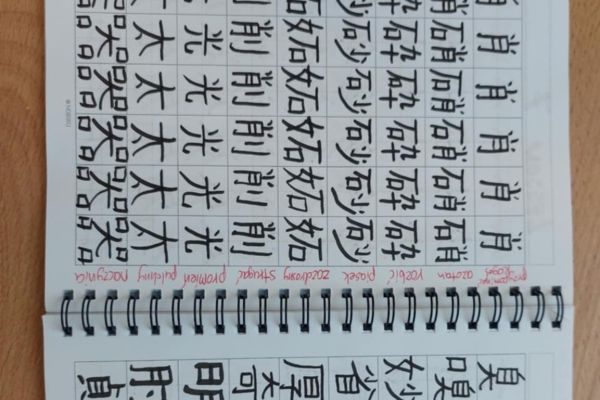 器 太 光 削 妬 砂 砕 硝 肖
器 太 光 削 妬 砂 砕 硝 肖
器 太 光 削 妬 砂 砕 硝 肖
器 太 光 削 妬 砂 砕 硝 肖
器 太 光 削 妬 砂 砕 硝 肖
przypominać kogoś azotan rozbić piasek zazdrosny strugać promień pulchny naczynia
貞 肘 明 奇 厚 省 妙 嗅 臭